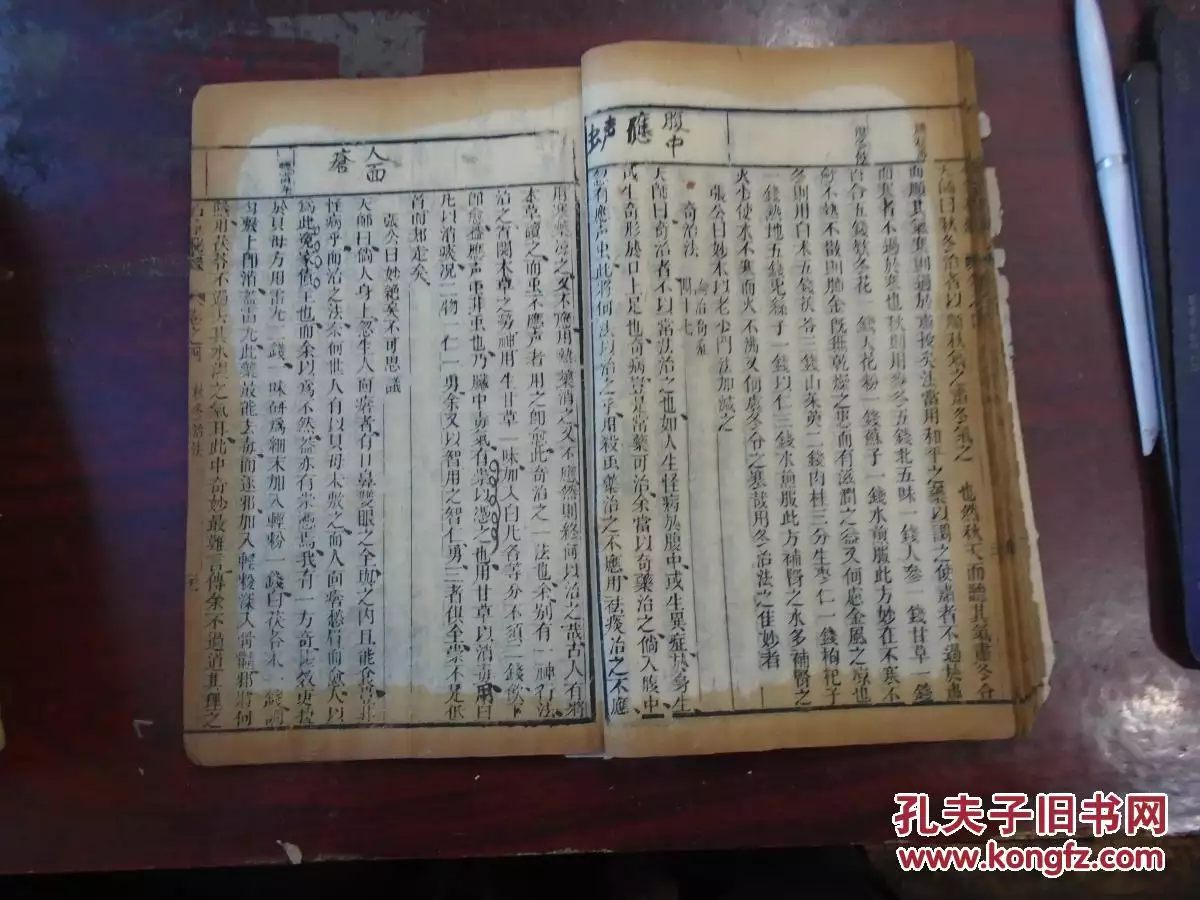 腹中
應
声
虫
天師曰秋冬治者以順秋氣之肅冬氣之
也然秋天而聽其氣肅冬令
而順其氣寒則過於肅殺矣法當用和平之藥以調之使肅者不過於肅
而寒者不過於寒也秋則用麥冬五錢北五味一錢人參一錢甘草一錢
百合五錢款冬花一錢天花粉一錢蘇子一錢水煎服此方妙在不寒不
不熱不散則肺金既無乾燥之患而有滋潤之益又何慮金風之凉也
冬則用白朮五錢茯苓三錢山茱萸二錢肉桂三分生棗仁一錢枸杞子
一錢熟地五錢兎絲子一錢以仁三錢水煎服此方補腎之水多補腎之
火少使水不寒而火不沸又何慮冬令之寒哉用冬治法之佳妙者
張公曰妙朮以老少門法加減之
奇治法
天師曰奇治者不以常法治之也如人生怪病於腹中或生異症於身生
或生奇形於口上是也奇病豈是常藥可治余當以奇藥治之倘人腹中
忽有應声虫此將何法以治之乎用殺虫藥治之不應用祛痰治之不應
人面
瘡
用寒藥凉之又不應用熱藥消之又不應然則終何以治之哉古人有將
本草讀之而虫不應声者用之即愈此奇治之一法也余別有一神奇法
治之省閱本草之勞神用生甘草一味加入白凡各等分不須二錢飲下
即愈蓋應声虫非虫也乃臟中毒氣有祟以憑之也用甘草以消毒用白
凡以消痰況二物一仁一勇余又以智用之智仁勇三者俱全祟不足祛
首而却走矣
張公曰妙絕矣不可思議
天師曰倘人身上忽生人面瘡者有口鼻雙眼之全與之肉且能食豈非
怪病乎而治之法奈何世人有以貝母末敷之而人面瘡愁眉而愈人以
爲此寃家債主也而余以爲不然蓋亦有祟憑焉我有一方奇甚效更捷
於貝母方用雷丸三錢一味研爲細末加入輕粉一錢白茯苓末一錢調
勻敷上即消蓋雷丸此藥最能去毒而逐邪加入輕粉深入骨髓邪將何
隱用茯苓不過去其水濕之氣耳此中奇妙最難言傳余不過道其理之
秋冬治法
孔夫子旧书网
www.kongfz.com